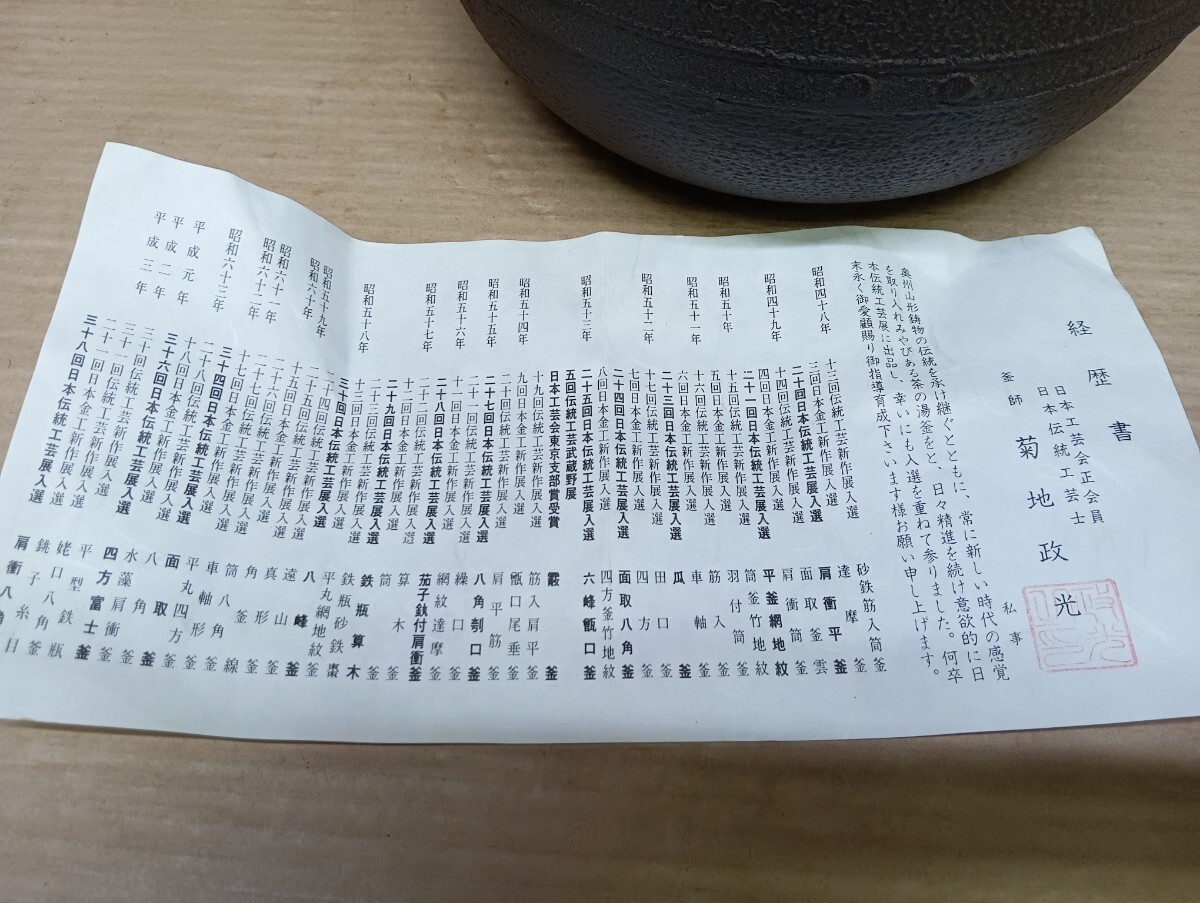 経歴書
日本工芸会正会員
日本伝統工芸士
釜師 菊地政光
私事
奥州山形鋳物の伝統を承け継ぐとともに、常に新しい時代の感覚
を取り入れみやびある茶の湯釜をと、日々精進を続け意欲的に日
本伝統工芸展に出品し、幸いにも入選を重ねて参りました。何卒
末永く御愛顧賜り御指導育成下さいます様お願い申し上げます。
昭和四十八年 十三回伝統工芸新作展入選 砂鉄筋入筒釜
三回日本金工新作展入選 達摩釜
二十回日本伝統工芸展入選 肩衝平釜
昭和四十九年 十四回伝統工芸新作展入選 面取釜雲
四回日本金工新作展入選 肩衝筒釜
二十一回日本伝統工芸展入選 平釜網地紋
昭和五十年 十五回伝統工芸新作展入選 筒釜竹地紋
五回日本金工新作展入選 羽付筒釜
昭和五十一年 十六回伝統工芸新作展入選 筋入釜
六回日本金工新作展入選 車軸釜
二十三回日本伝統工芸展入選 瓜釜
昭和五十二年 十七回伝統工芸新作展入選 田口釜
七回日本金工新作展入選 四方釜
二十四回日本伝統工芸展入選 面取八角釜
昭和五十三年 八回日本金工新作展入選 四方釜竹地紋
二十五回日本伝統工芸展入選 六峰甑口釜
五回伝統工芸武蔵野展
日本工芸会東京支部賞受賞 霰釜
昭和五十四年 十九回伝統工芸新作展入選 筋入肩平釜
九回日本金工新作展入選 甑口尾垂釜
昭和五十五年 二十回伝統工芸新作展入選 肩平筋釜
二十七回日本伝統工芸展入選 八角刳口釜
昭和五十六年 二十一回伝統工芸新作展入選 繰口釜
十一回日本金工新作展入選 網紋達摩釜
二十八回日本伝統工芸展入選 茄子釱付肩衝釜
昭和五十七年 二十二回伝統工芸新作展入選 算木釜
十二回日本金工新作展入選 筒釜
二十九回日本伝統工芸展入選 鉄瓶算木
昭和五十八年 二十三回伝統工芸新作展入選 鉄瓶砂鉄棗
十三回日本金工新作展入選 平丸網地紋釜
三十回日本伝統工芸展入選 八峰釜
昭和五十九年 二十四回伝統工芸新作展入選 遠山釜
昭和六十年 十五回日本金工新作展入選 真形釜
昭和六十一年 二十六回伝統工芸新作展入選 角釜
昭和六十二年 二十七回伝統工芸新作展入選 筒八線
十七回日本金工新作展入選 車軸形釜
三十四回日本伝統工芸展入選 平丸四方釜
昭和六十三年 二十八回伝統工芸新作展入選 八角釜
十八回日本金工新作展入選 水藻肩衝釜
平成元年 三十六回日本伝統工芸展入選 四方富士釜
平成二年 三十回伝統工芸新作展入選 平型鉄瓶
平成三年 三十一回伝統工芸新作展入選 姥口八角釜
二十一回日本金工新作展入選 銚子糸目
三十八回日本伝統工芸展入選 肩衝八角